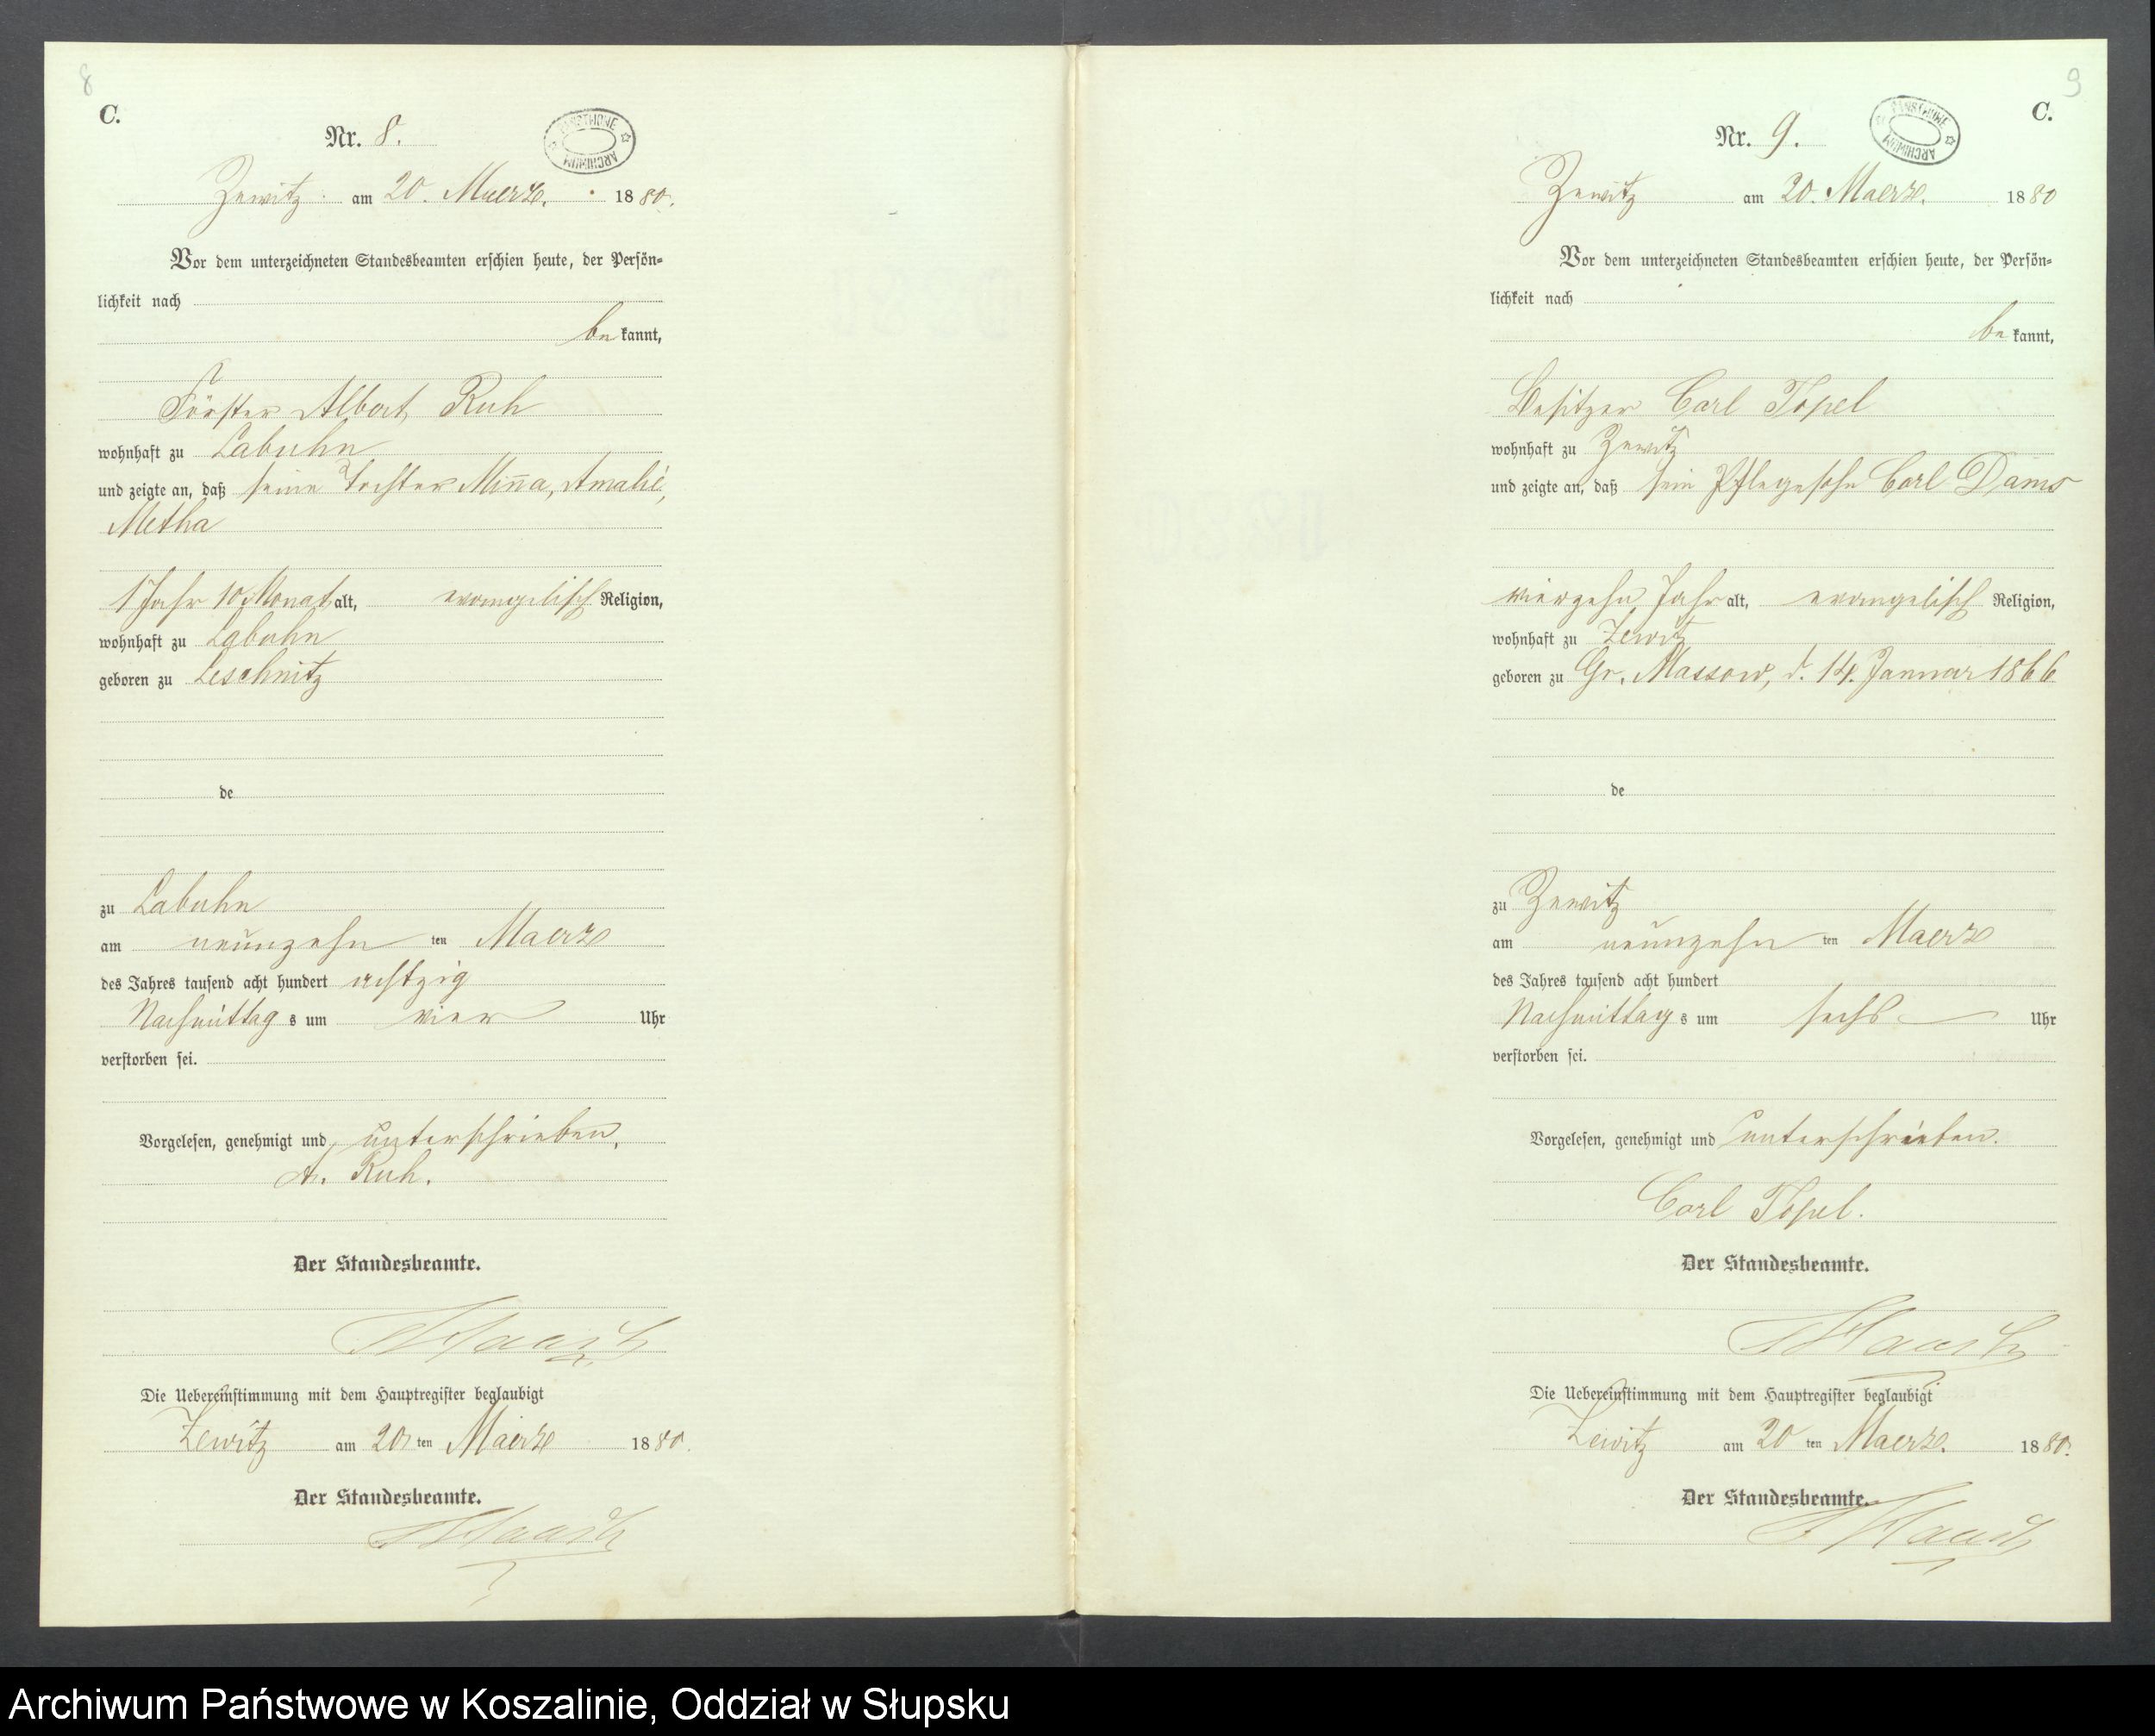 8
C.
Nr. 8.
ARCHIWUM PAŃSTWOWE
Zewitz am 20. Maerz. 1880.
Vor dem unterzeichneten Standesbeamten erschien heute, der Persön-
lichkeit nach
bekannt,
Förster Albert Ruh
wohnhaft zu Labuhn
und zeigte an, daß seine Tochter Miña, Amalie,
Metha
1 Jahr 10 Monat alt, evangelisch Religion,
wohnhaft zu Labuhn
geboren zu Leschnitz
de
zu Labuhn
am neunzehn ten Maerz
des Jahres tausend acht hundert achtzig
Nachmittag s um vier Uhr
verstorben sei.
Vorgelesen, genehmigt und unterschrieben.
A. Ruh.
Der Standesbeamte.
Die Uebereinstimmung mit dem Hauptregister beglaubigt
Zewitz am 20 ten Maerz 1880.
Der Standesbeamte.
9
C.
Nr. 9.
ARCHIWUM PAŃSTWOWE
Zewitz am 20. Maerz. 1880
Vor dem unterzeichneten Standesbeamten erschien heute, der Persön-
lichkeit nach
bekannt,
Besitzer Carl Topel
wohnhaft zu Zewitz
und zeigte an, daß sein Pflegesohn Carl Dams
vierzehn Jahr alt, evangelisch Religion,
wohnhaft zu Zewitz
geboren zu Gr. Massow, d. 14. Januar 1866
de
zu Zewitz
am neunzehn ten Maerz
des Jahres tausend acht hundert
Nachmittag s um sechs Uhr
verstorben sei.
Vorgelesen, genehmigt und unterschrieben.
Carl Topel.
Der Standesbeamte.
Die Uebereinstimmung mit dem Hauptregister beglaubigt
Zewitz am 20 ten Maerz. 1880.
Der Standesbeamte.
Archiwum Państwowe w Koszalinie, Oddział w Słupsku